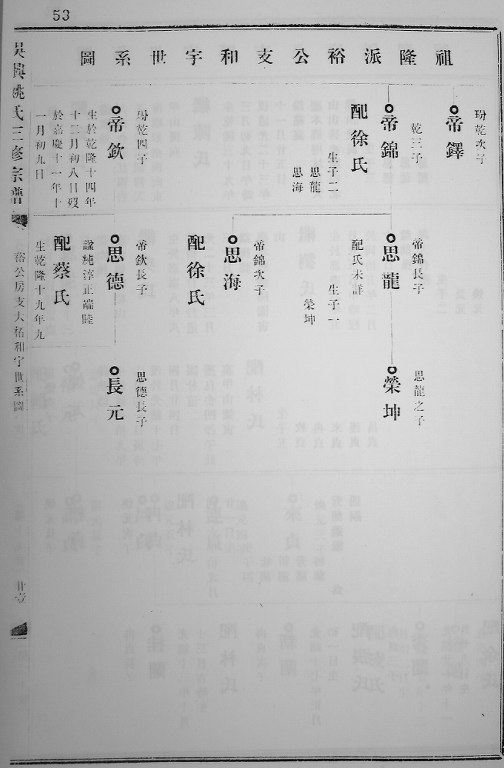 53
祖隆派裕公支和宇世系圖
吳興姚氏三修宗譜
裕公房支大祐和宇世系圖
廿壹
玚乾次子
帝鐸
乾三子
帝錦
配徐氏
生子二
思龍
思海
玚乾四子
帝欽
生於乾隆十四年
十二月初八日歿
於嘉慶十一年十
一月初九日
帝錦長子
思龍
配氏未詳
生子一
榮坤
帝錦次子
思海
配徐氏
帝欽長子
思德
諡純淳正端睦
配蔡氏
生乾隆十九年九
思龍之子
榮坤
思德長子
長元